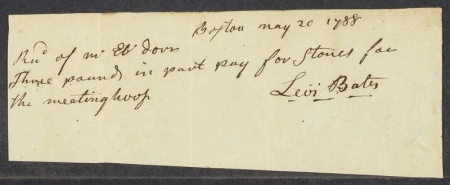 Boston may 20 1788
Rec'd of mr Eb dorr
Three pounds in part pay for Stones for
the meatinghoos
Levi Bates